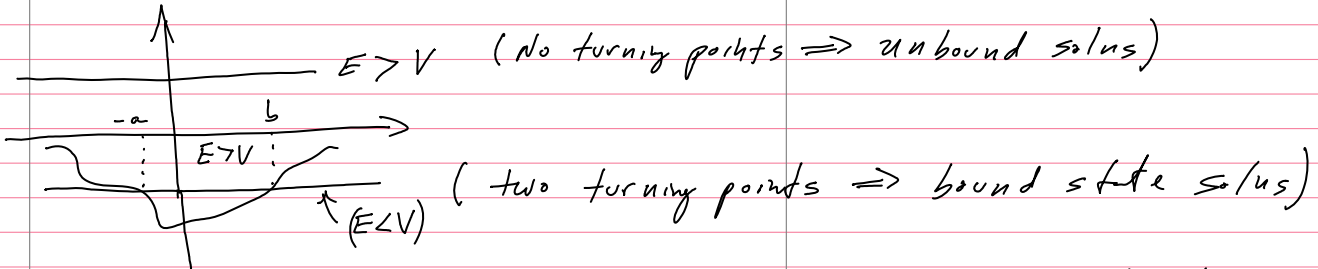 E > V (No turning points ⇒ unbound solns)
-a b
E>V
(two turning points ⇒ bound state solns)
(E<V)